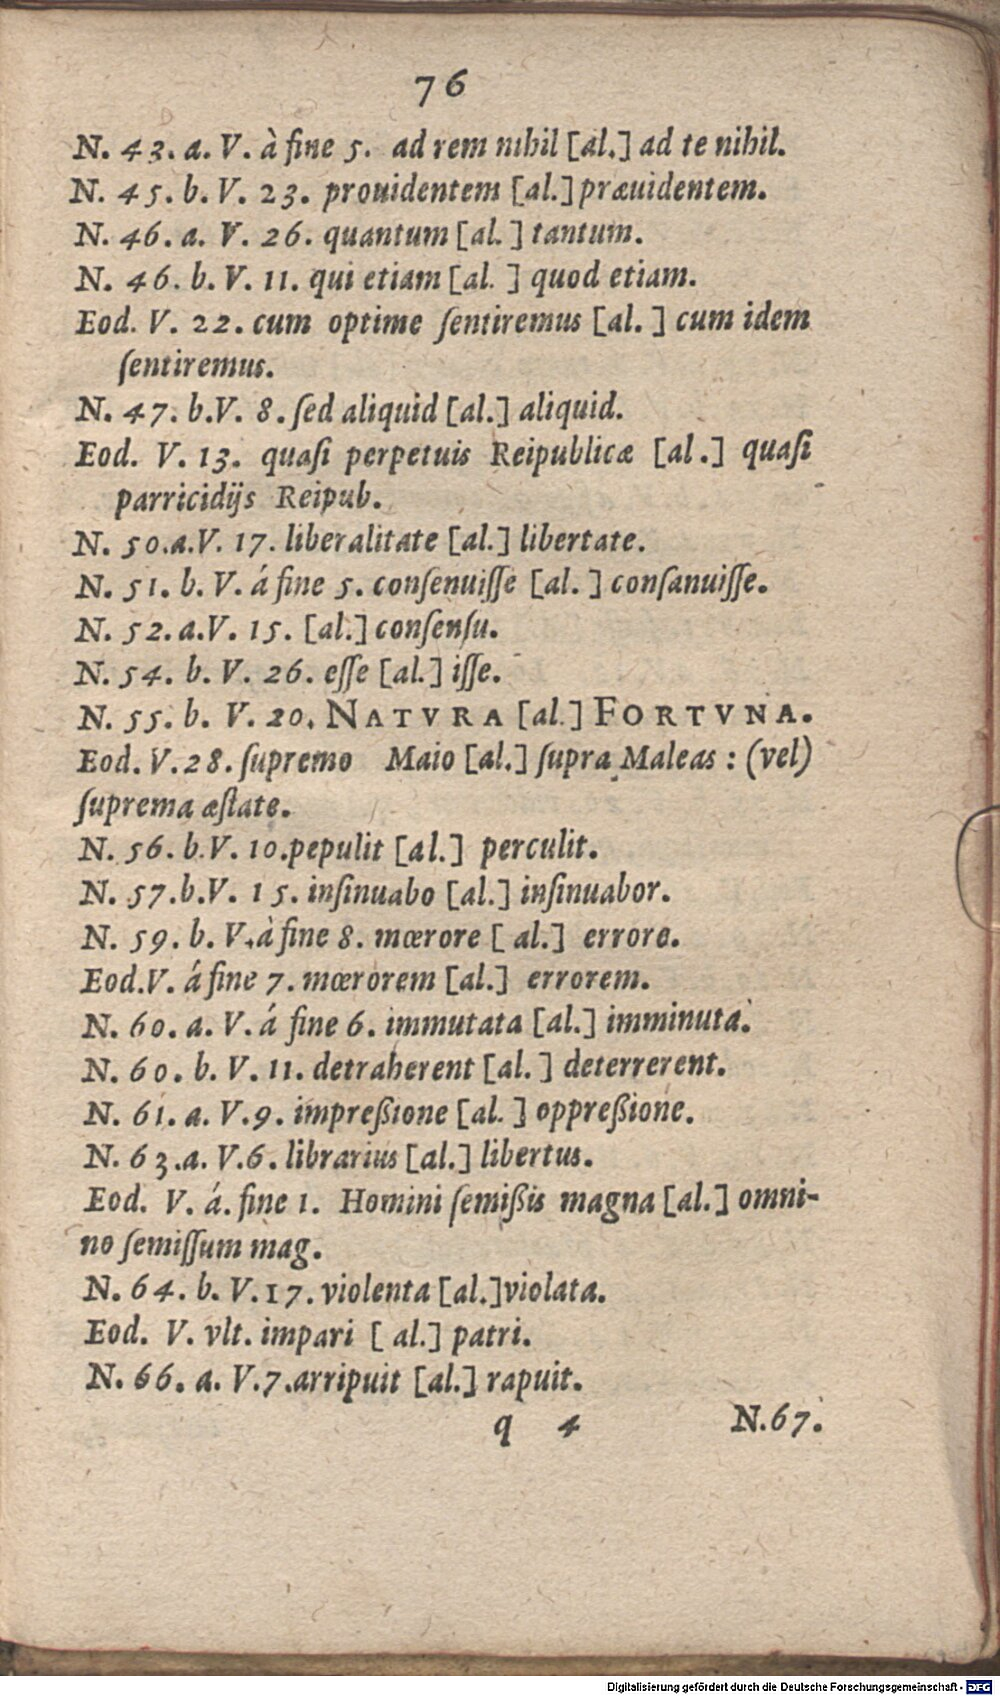 76
N. 43. a. V. à fine 5. ad rem nihil [al.] ad te nihil.
N. 45. b. V. 23. prouidentem [al.] præuidentem.
N. 46. a. V. 26. quantum [al. ] tantum.
N. 46. b. V. 11. qui etiam [al. ] quod etiam.
Eod. V. 22. cum optime ſentiremus [al. ] cum idem
ſentiremus.
N. 47. b.V. 8. ſed aliquid [al.] aliquid.
Eod. V. 13. quaſi perpetuis Reipublicæ [al.] quaſi
parricidijs Reipub.
N. 50.a.V. 17. liberalitate [al.] libertate.
N. 51. b. V. á fine 5. conſenuiſſe [al. ] conſanuiſſe.
N. 52. a.V. 15. [al.] conſenſu.
N. 54. b. V. 26. eſſe [al.] iſſe.
N. 55. b. V. 20. NATVRA [al.] FORTVNA.
Eod. V. 28. ſupremo Maio [al.] ſupra Maleas : (vel)
ſuprema æſtate.
N. 56. b. V. 10. pepulit [al.] perculit.
N. 57.b.V. 15. inſinuabo [al.] inſinuabor.
N. 59. b. V. à fine 8. mœrore [ al.] errore.
Eod.V. á fine 7. mœrorem [al.] errorem.
N. 60. a. V. á fine 6. immutata [al.] imminuta.
N. 60. b. V. 11. detraherent [al. ] deterrerent.
N. 61. a. V.9. impreßione [al. ] oppreßione.
N. 63.a. V.6. librarius [al.] libertus.
Eod. V. á. fine 1. Homini ſemißis magna [al.] omni-
no ſemiſſum mag.
N. 64. b. V.17. violenta [al.]violata.
Eod. V. vlt. impari [ al.] patri.
N. 66. a. V.7.arripuit [al.] rapuit.
q 4 N.67.
Digitalisierung gefördert durch die Deutsche Forschungsgemeinschaft - DFG